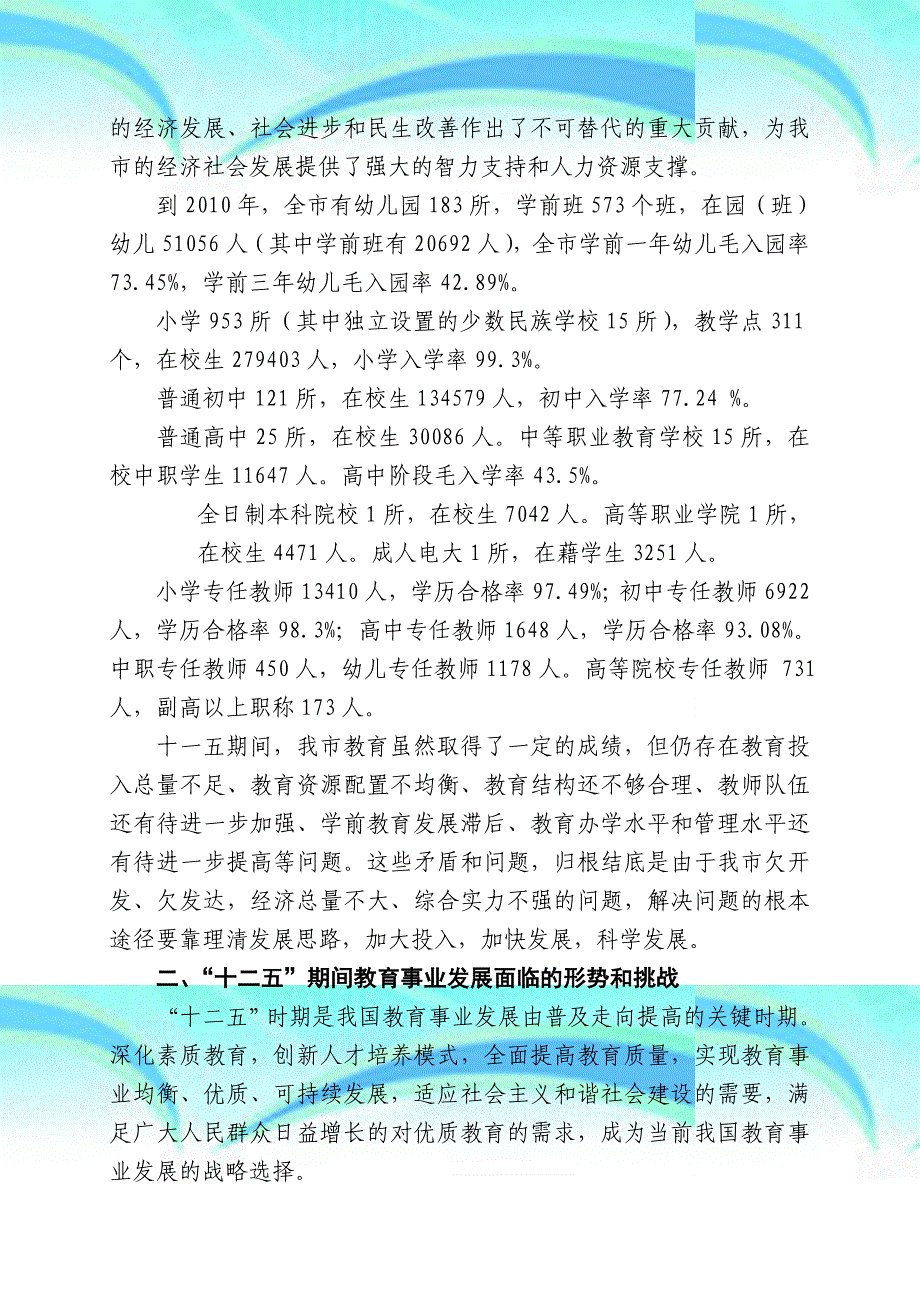 的经济发展、社会进步和民生改善作出了不可替代的重大贡献，为我
市的经济社会发展提供了强大的智力支持和人力资源支撑。
到 2010 年，全市有幼儿园 183 所，学前班 573 个班，在园（班）
幼儿 51056 人（其中学前班有 20692 人），全市学前一年幼儿毛入园率
73.45%，学前三年幼儿毛入园率 42.89%。
小学 953 所（其中独立设置的少数民族学校 15 所），教学点 311
个，在校生 279403 人，小学入学率 99.3%。
普通初中 121 所，在校生 134579 人，初中入学率 77.24 %。
普通高中 25 所，在校生 30086 人。中等职业教育学校 15 所，在
校中职学生 11647 人。高中阶段毛入学率 43.5%。
全日制本科院校 1 所，在校生 7042 人。高等职业学院 1 所，
在校生 4471 人。成人电大 1 所，在藉学生 3251 人。
小学专任教师 13410 人，学历合格率 97.49%；初中专任教师 6922
人，学历合格率 98.3%；高中专任教师 1648 人，学历合格率 93.08%。
中职专任教师 450 人，幼儿专任教师 1178 人。高等院校专任教师 731
人，副高以上职称 173 人。
十一五期间，我市教育虽然取得了一定的成绩，但仍存在教育投
入总量不足、教育资源配置不均衡、教育结构还不够合理、教师队伍
还有待进一步加强、学前教育发展滞后、教育办学水平和管理水平还
有待进一步提高等问题。这些矛盾和问题，归根结底是由于我市欠开
发、欠发达，经济总量不大、综合实力不强的问题，解决问题的根本
途径要靠理清发展思路，加大投入，加快发展，科学发展。
二、“十二五”期间教育事业发展面临的形势和挑战
“十二五”时期是我国教育事业发展由普及走向提高的关键时期。
深化素质教育，创新人才培养模式，全面提高教育质量，实现教育事
业均衡、优质、可持续发展，适应社会主义和谐社会建设的需要，满
足广大人民群众日益增长的对优质教育的需求，成为当前我国教育事
业发展的战略选择。